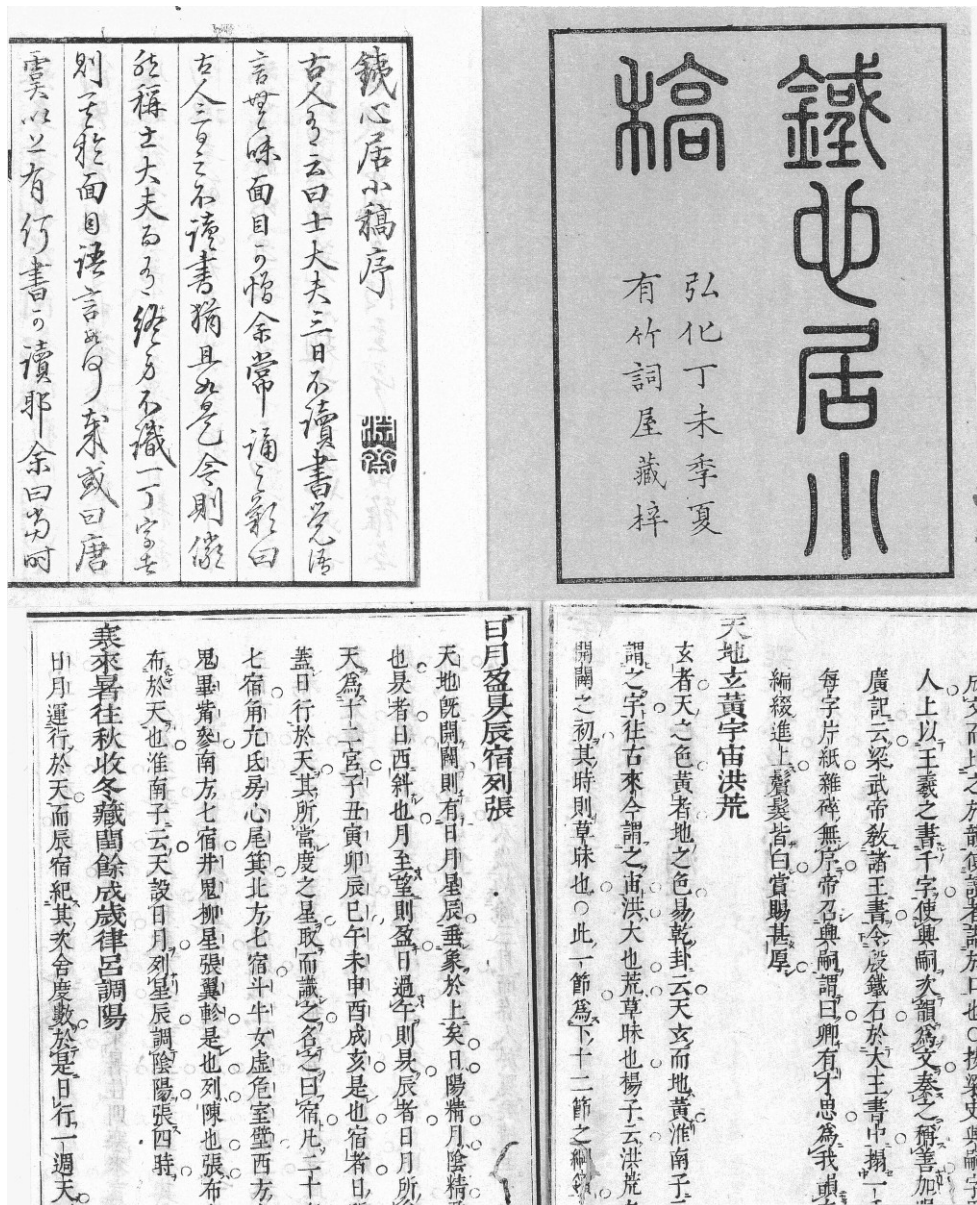 鐵心居小
稿
弘化丁未季夏
有竹詞屋藏梓
銕心居小稿序
古人有云曰士大夫三日不讀書覚語
言無味面目可憎余常誦之歎曰
古人三日之不讀書猶且如是今則儼
然稱士大夫而有終身不識一丁字者
則其於面目語言如何哉或曰唐
虞以上有何書可讀耶余曰当时
人上以王羲之書千字使興嗣次韻爲文奏之稱善加
廣記云梁武帝敎諸王書令殷鐵石於大王書中搨一
每字片紙雜碎無序帝召興嗣謂曰卿有才思爲我韻
編綴進上鬢髮皆白賞賜甚厚
天地玄黃宇宙洪荒
玄者天之色黃者地之色易乾卦云天玄而地黃淮南子
謂之宇往古來今謂之宙洪大也荒草昧也楊子云洪荒
開闢之初其時則草昧也○此一節爲下十二節之綱
日月盈昃辰宿列張
天地旣開闢則有日月星辰垂象於上矣日陽精月陰精
也昃者日西斜也月至望則盈日過午則昃辰者日月所
天爲十二宮子丑寅卯辰巳午未申酉戌亥是也宿者日
蓋日行於天其所當度之星取而識之名之曰宿凡二十
七宿角亢氐房心尾箕北方七宿斗牛女虛危室壁西方
昴畢觜參南方七宿井鬼柳星張翼軫是也列陳也張布
布於天也淮南子云天設日月列星辰調陰陽張四時
寒來暑往秋收冬藏閏餘成歲律呂調陽
日月運行於天而辰宿紀其次舍度數於是日行一週天